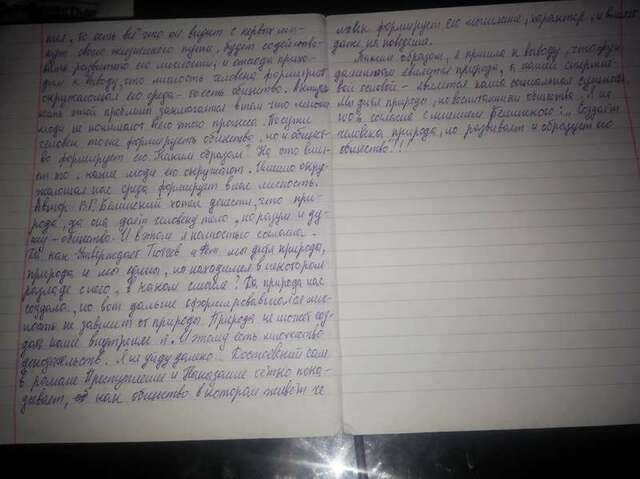 ния, то есть всё что он видит с первых ми-
нут своего жизненного пути, будет содейство-
вать развитию его личности, и отсюда прихо-
дим к выводу, что личность человека формирует
окружающая его среда - то есть общество. Актуаль-
ность этой проблемы заключается в том что многие
люди не понимают всего этого процесса. По сути
человек тоже формирует общество, но и общест-
во формирует его. Каким образом? На это влия-
ет то, какие люди его окружают. Именно окру-
жающая нас среда формирует в нас личность.
Автор В.Г. Белинский хотел донести, что при-
рода, да она даёт человеку тело, но разум и ду-
шу - общество. И в этом я полностью согласна.
как утверждает Тютчев мы дети природы,
природа и мы едины, но находимся в некотором
разладе с нею. В каком смысле? Да, природа нас
создала, но вот дальше сформировавшаяся лич-
ность не зависит от природы. Природа не может соз-
дать наше внутреннее я. И этому есть множество
доказательств. Я не уйду далеко. Достоевский сам
в романе Преступление и Наказание чётко пока-
зывает, как общество в котором живёт че
ловек формирует его мышление, характер, и влияет
даже на поведение.
Таким образом, я пришла к выводу, что фун-
даментом является природа, а нашей
основой - является наша социальная сущность
Мы дети природы, но воспитанники общества. Я не
согласна с мнением Белинского "... Создаёт
человека природа, но развивает и образует его
общество"!!!